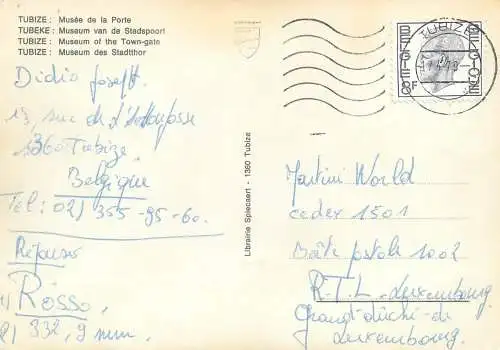 TUBIZE : Musée de la Porte
TUBEKE : Museum van de Stadspoort
TUBIZE : Museum of the Town-gate
TUBIZE : Museum des Stadttor
TUBIZE
BELGIE
BELGIQUE
8F
Didio Joseph.
13, rue de
1360 Tubize.
Belgique
Tel: 02) 355-95-60.
Réponses
1) Rosso,
2) 332,9 mm.
Librairie Spiecaert - 1360 Tubize
Martini World
cedex 1501
Boîte postale 1002
R.T.L. Luxembourg
Grand-duché-de
Luxembourg.